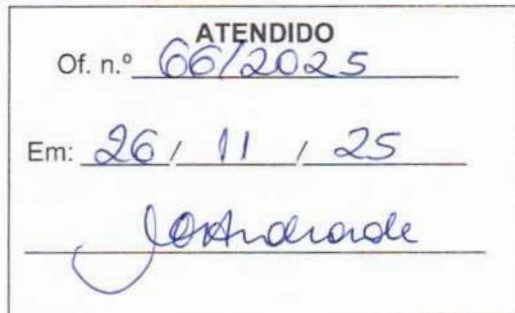 ATENDIDO
Of. n.º 66/2025
Em: 26 / 11 / 25